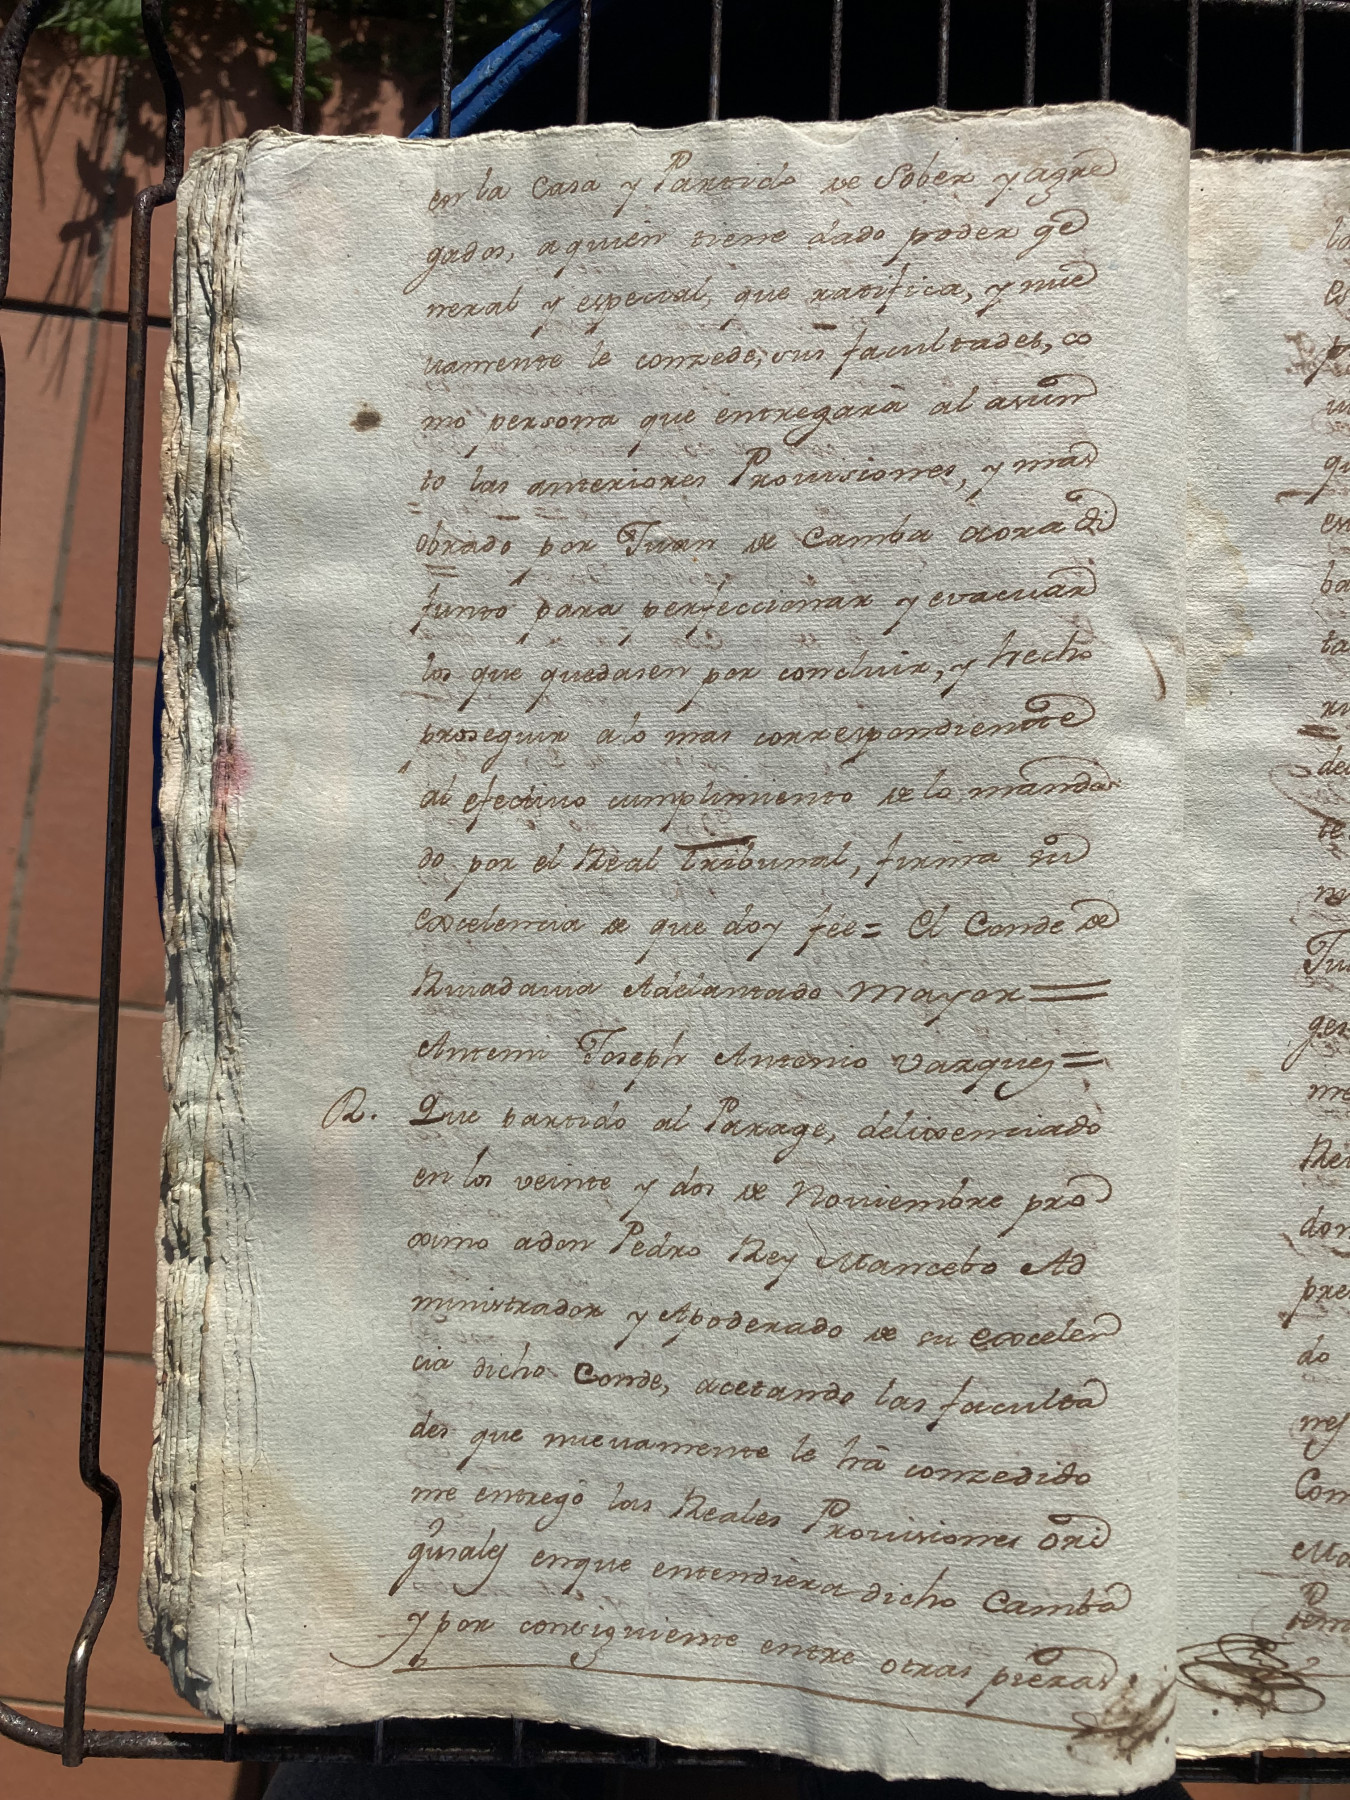 en la Casa y Partido de Sober y agre
gados, a quien tiene dado poder ge
neral y especial, que ratifica, y nue
uamente le conzede, sus facultades, co
mo persona que entregará al asun
to las anteriores Prouisiones, y mas
obrado por Juan de Camba aora di
funto para perfeccionar y evacuar
los que quedasen por concluir, y hecho
proseguir alo mas correspondiente
al efectiuo cumplimiento de lo manda
do por el Real tribunal, firma su
excelencia de que doy feè= El Conde de
Riuadauia Adelantado Mayor=
Antemi Joseph Antonio Vazquez=
R. Que partido al Parage, delixenciado
en los veinte y dos de Nouiembre pro
ximo adon Pedro Rey Mancebo Ad
ministrador y Apoderado de su excelen
cia dicho Conde, acetando las faculta
des que nueuamente le há conzedido
me entregò las Reales Prouisiones ori
ginales enque entendiera dicho Camba
y por consiguiente entre otras piezas